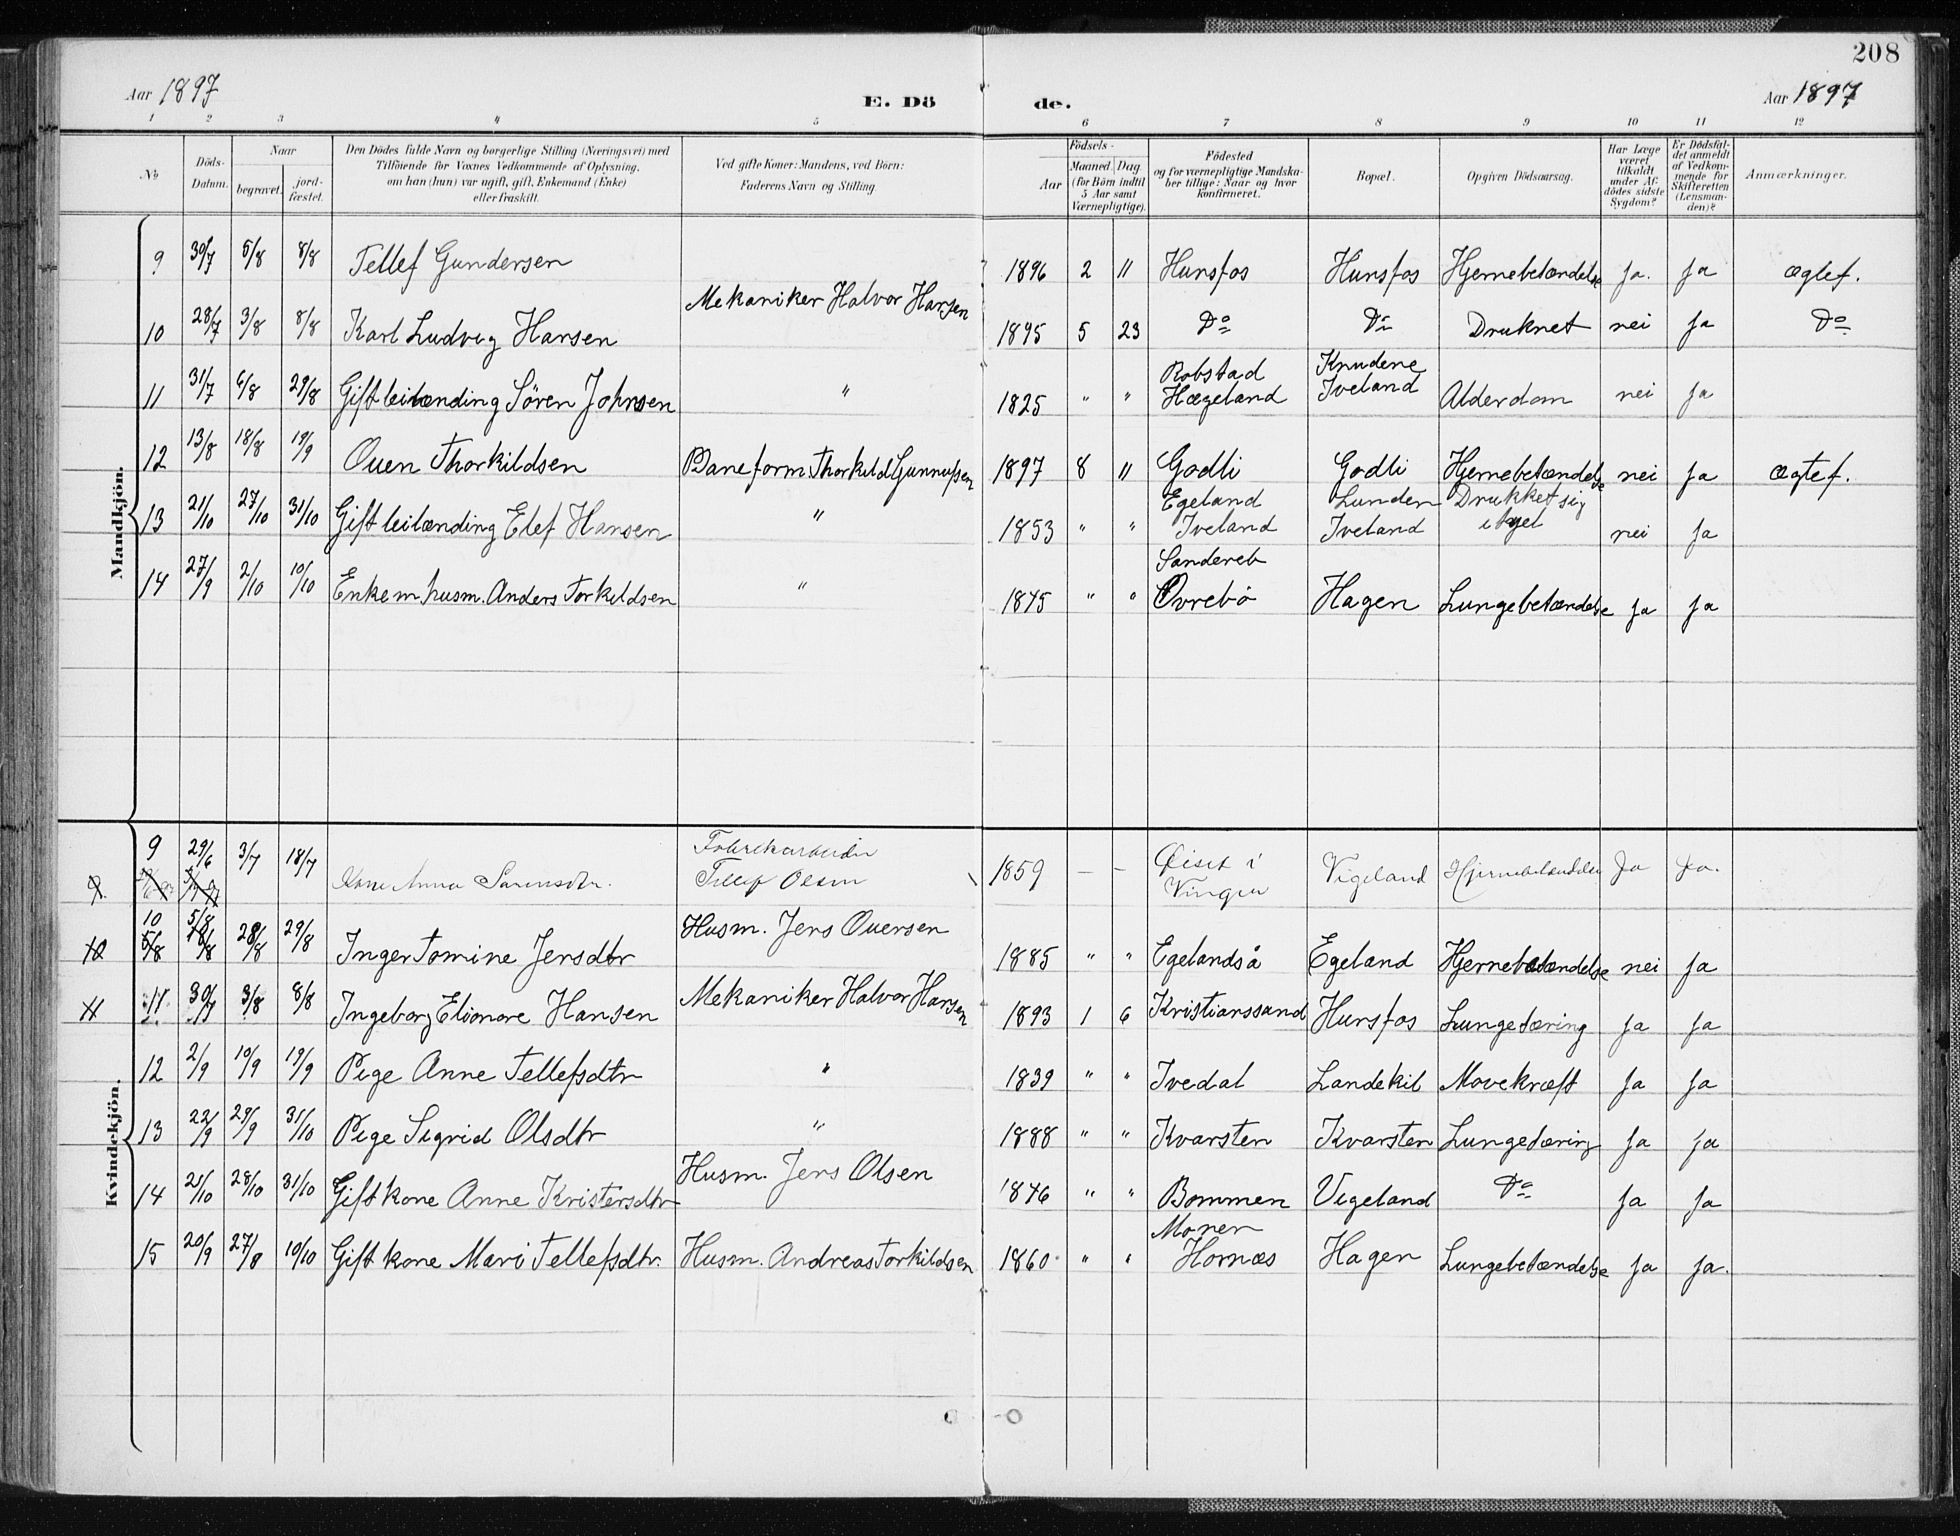 208
Aar 1897
E. Dö
de.
Aar 1897
1 2 3 4 5 6 7 8 9 10 11 12
No
Döds-Datum.
Naar
begravet.
jord-fæstet.
Den Dödes fulde Navn og borgerlige Stilling (Næringsvei) med
Tilföiende for Voxnes Vedkommende af Oplysning,
om han (hun) var ugift, gift, Enkemand (Enke)
eller fraskilt.
Ved gifte Koner: Mandens, ved Börn:
Faderens Navn og Stilling.
Födsels-
Aar
Maaned. Dag.
(for Börn indtil
5 Aar samt
Værnepligtige).
Födested
og for værnepligtige Mandska-
ber tillige: Naar og hvor
konfirmeret.
Bopæl.
Opgiven Dödsaarsag.
Har Læge
været
tilkaldt
under Af-
dödes sidste
Sygdom?
Er Dödsfal-
det anmeldt
af Vedkom-
mende for
Skifteretten
(Lensman-
den)?
Anmærkninger.
Mandkjön.
9 30/7 5/8 8/8 Tellef Gundersen 1896 2 11 Hunsfos Hunsfos Hjernebetændelse Ja. Ja ægtef.
Mekaniker Halvor Hansen
10 28/7 3/8 8/8 Karl Ludvig Hansen 1895 5 23 Do Do Druknet nei Ja Do
Robstad Knudene
11 31/7 6/8 29/8 Gift leilænding Sören Johnsen " 1825 " " Hægeland Iveland Alderdom nei Ja
12 13/8 18/8 19/9 Ouen Thorkildsen Baneform. Thorkild Gunnufsen 1897 8 11 Godli Godli Hjernebetændelse nei Ja ægtef.
Egeland Lunden Drukket sig
13 21/10 27/10 31/10 Gift leilænding Elef Hansen " 1853 " " Iveland Iveland ihjel nei Ja
14 27/9 2/10 10/10 Enkem. husm. Anders Torkildsen " 1845 " " Övrebö Hagen Lungebetændelse Ja Ja
Kvindekjön.
Fabrikarbeider
9 29/6 3/7 18/7 Kone Anna Sørensdtr. Tellef Olsen 1859 – – Vigeland Hjernebetændelse Ja Ja.
10 5/8
Husm. Jens Ouensen
10 28/8 29/8 Inger Tomine Jensdtr 1885 " " Egelandså Egeland Hjernebetændelse nei Ja
Mekaniker Halvor Hansen
11 11 30/7 3/8 8/8 Ingeborg Elionore Hansen 1893 1 6 Kristianssand Hunsfos Lungetæring Ja Ja
12 2/9 10/9 19/9 Pige Anne Tellefsdtr " 1839 " " Ivedal Landekil Mavekræft Ja Ja
13 22/9 29/9 31/10 Pige Sigrid Olsdtr " 1888 " " Kvarsten Kvarsten Lungetæring Ja Ja
Husm. Jens Olsen
14 21/10 28/10 31/10 Gift kone Anne Kristensdtr 1846 " " Bommen Vigeland Do Ja Ja
Monen
15 20/9 27/8 10/10 Gift kone Mari Tellefsdtr. Husm. Andreas Torkildsen 1860 " " Hornæs Hagen Lungebetændelse Ja Ja.